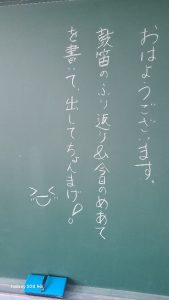 おはようございます。
鼓笛のふり返り&今日のめあて
を書いて、出してちょんまげ!。